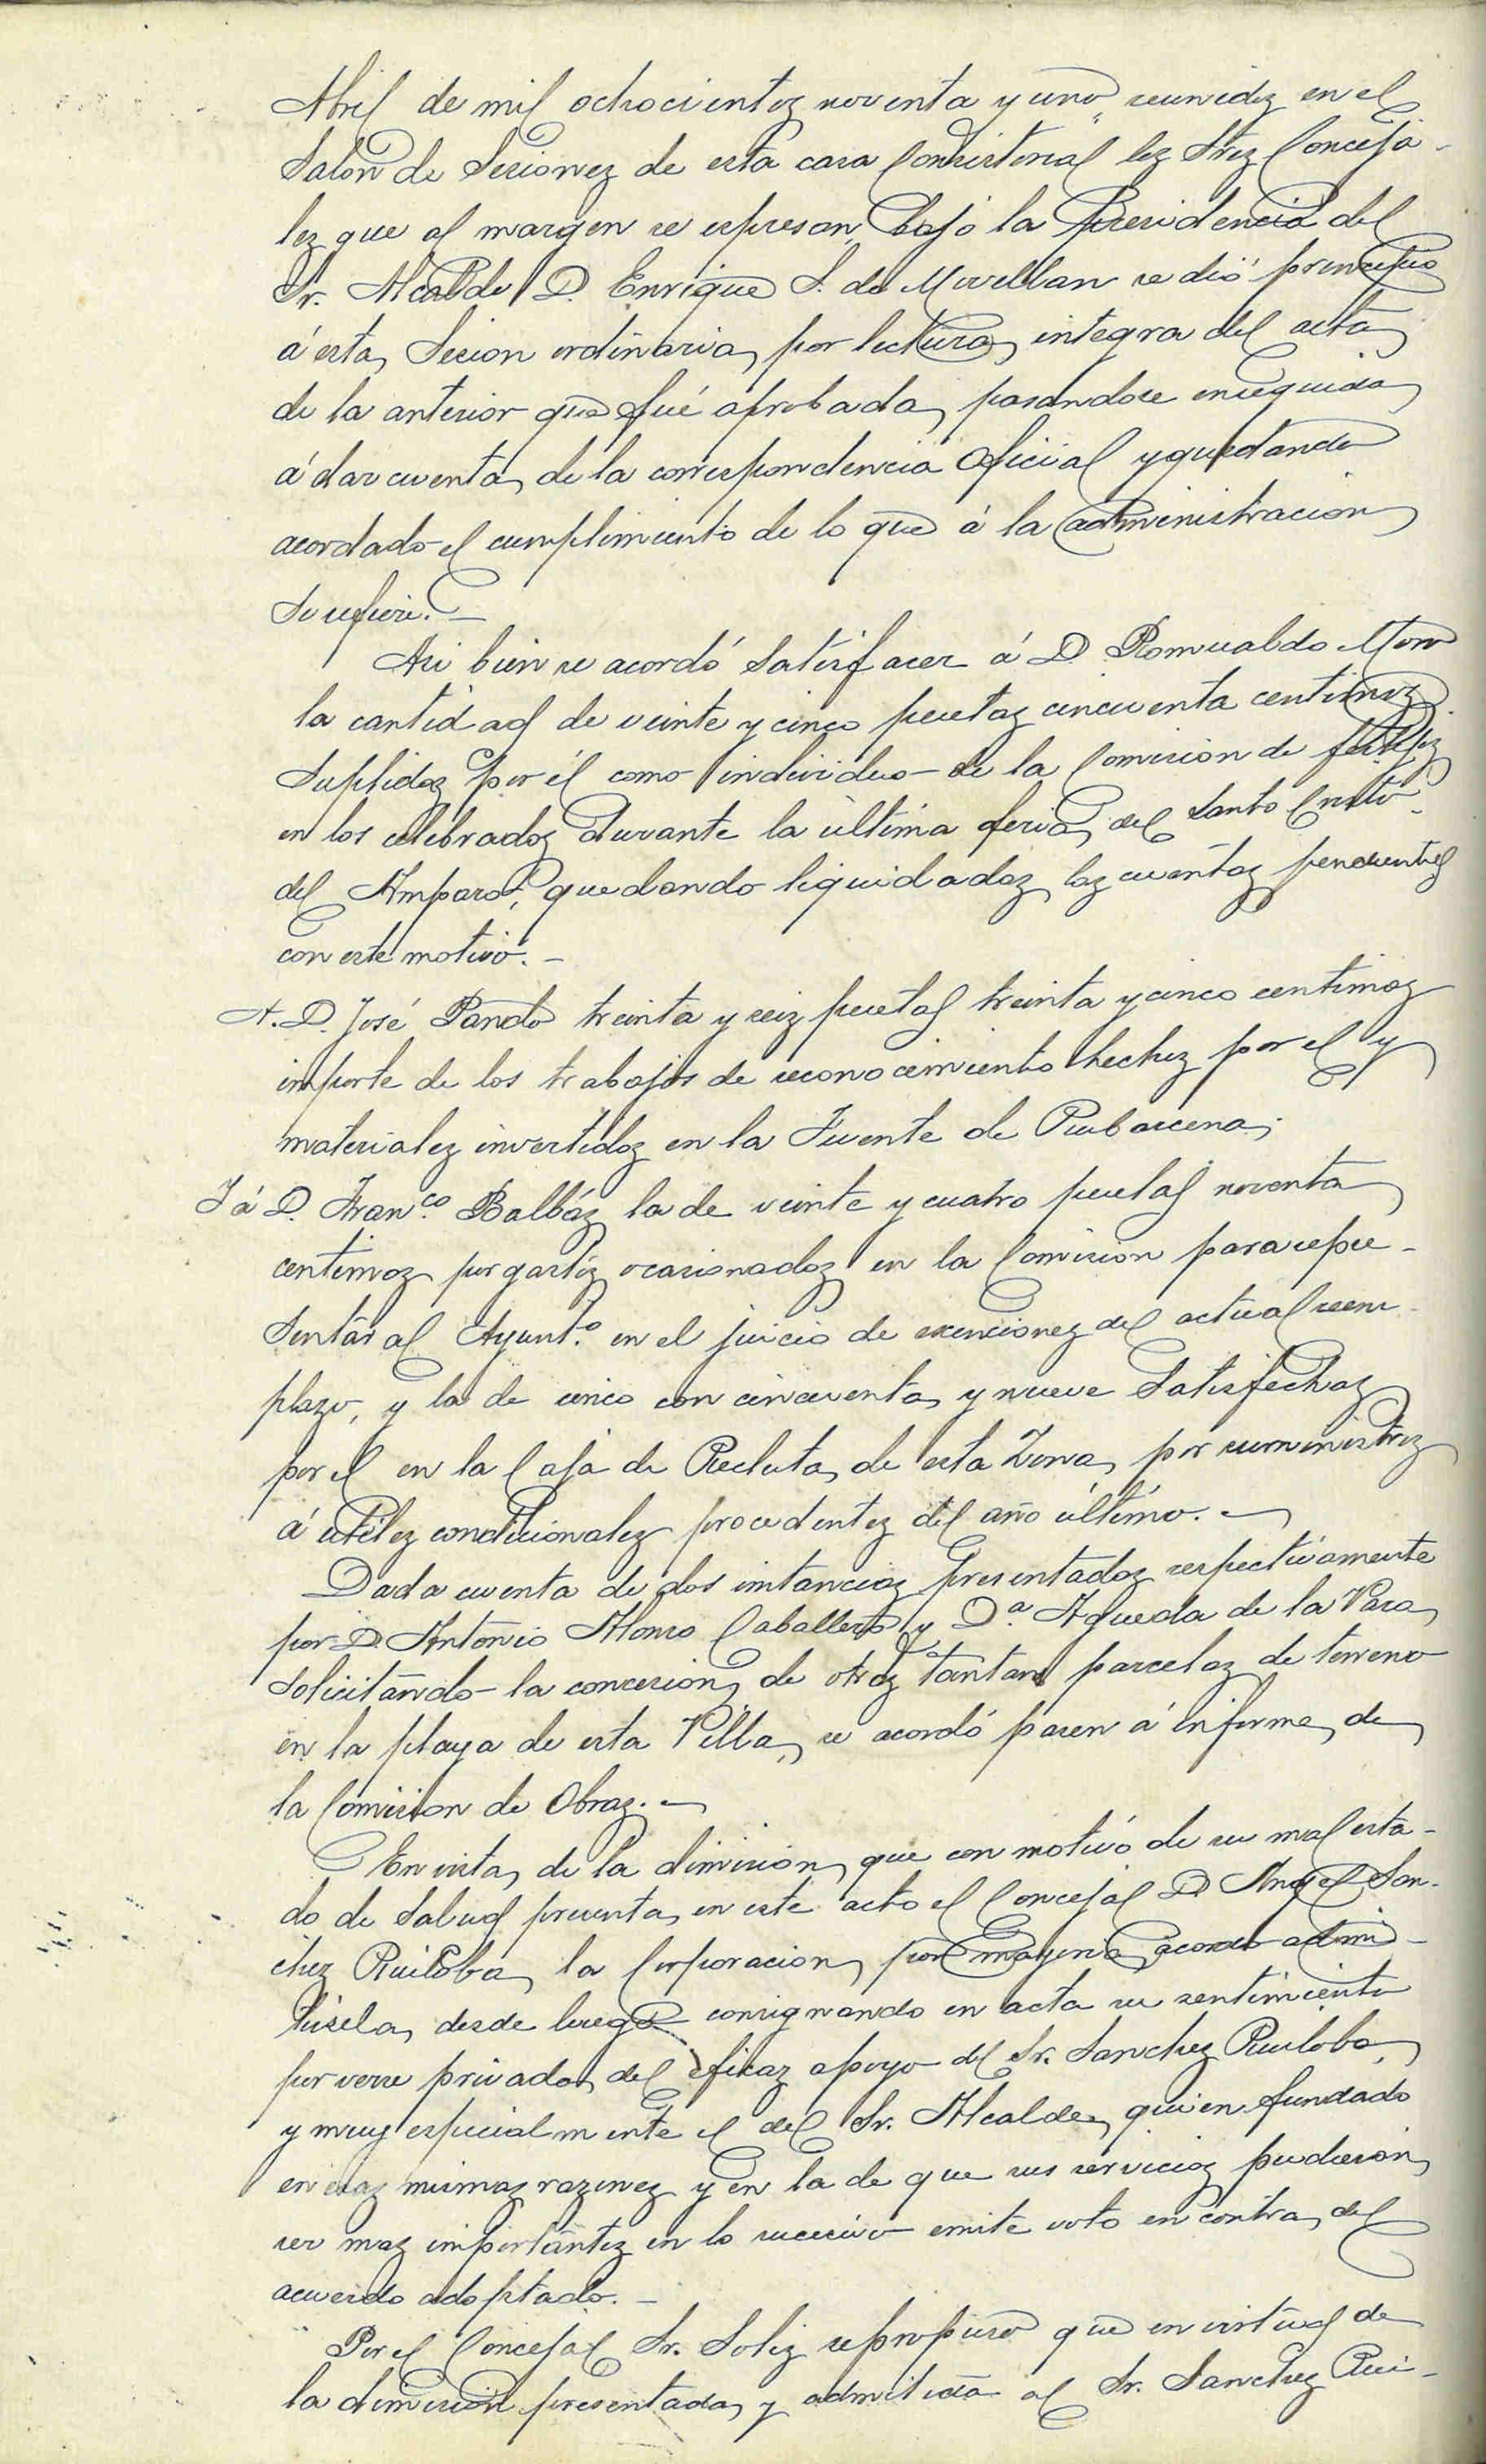 Abril de mil ochocientos noventa y uno, reunidos en el
Salon de Sesiones de esta casa Consistorial los Sres Conceja-
les que al margen se espresan, bajo la Presidencia del
Sr. Alcalde D. Enrique S. de Movellan se dió principio
á esta Sesion ordinaria por lectura integra del acta
de la anterior que fué aprobada, pasandose enseguida
á dar cuenta de la correspondencia oficial y quedando
acordado el cumplimiento de lo que á la administracion
se refiere.—
Asi bien se acordó satisfacer á D. Romualdo Moro
la cantidad de veinte y cinco pesetas cincuenta centimos
suplidos por él como individuo de la Comision de festejos
en los celebrados durante la última feria del Santo Cristo
del Amparo, quedando liquidadas las cuentas pendientes
con este motivo.—
A. D. José Pando treinta y seis pesetas treinta y cinco centimos
importe de los trabajos de reconocimiento hechos por el y
materiales invertidos en la Fuente de Rubarcena;
I á D. Fran.co Balbás la de veinte y cuatro pesetas noventa
centimos por gastos ocasionados en la Comision para repre-
sentar al Ayunt.o en el juicio de exenciones del actual reem-
plazo, y la de cinco con cincuenta y nueve satisfechas
por el en la Caja de Recluta de esta Zona por suministros
á utiles condicionales procedentes del año último.—
Dada cuenta de dos instancias presentadas respectivamente
por D. Antonio Alonso Caballero y D.a Agueda de la Vara
solicitando la concesion de otras tantas parcelas de terreno
en la playa de esta Villa, se acordó pasen á informe de
la Comision de Obras.—
En vista de la dimision que con motivo de su mal esta-
do de salud presenta en este acto el Concejal D Angel San-
chez Ruiloba, la Corporacion por mayoria acordó admi-
tirsela desde luego consignando en acta su sentimiento
por verse privada del eficaz apoyo del Sr. Sanchez Ruiloba,
y muy especialmente el del Sr. Alcalde, quien fundado
en esas mismas razones y en la de que sus servicios pudieran
ser mas importantes en lo sucesivo emite voto en contra del
acuerdo adoptado.—
Por el Concejal Sr. Solis se propuso que en virtud de
la dimision presentada y admitida al Sr. Sanchez Rui-